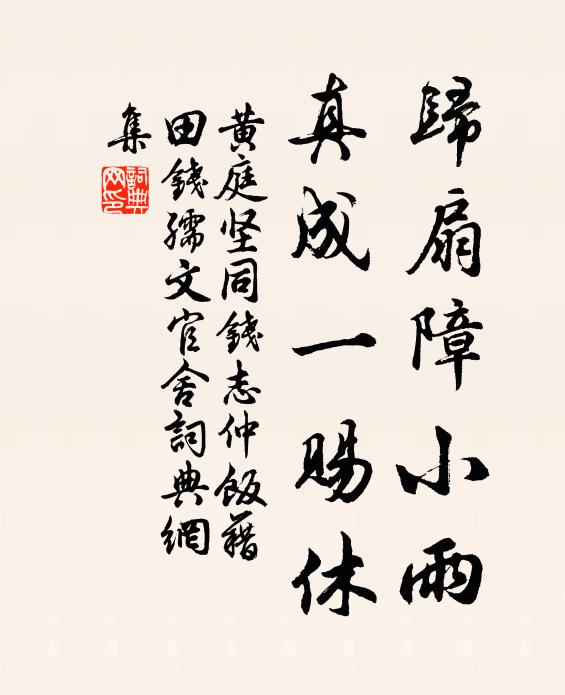 歸扇障小雨
真成一賜休
黃庭坚同錢志仲飯藉
田錢孺文官舍詞典網
集
詞典
网印